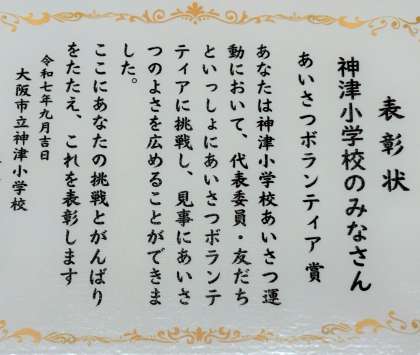 表彰状
神津小学校のみなさん
あいさつボランティア賞
あなたは神津小学校あいさつ運
動において、代表委員・友だち
といっしょにあいさつボランテ
ィアに挑戦し、見事にあいさ
つのよさを広めることができま
した。
ここにあなたの挑戦とがんばり
をたたえ、これを表彰します
令和七年九月吉日
大阪市立神津小学校